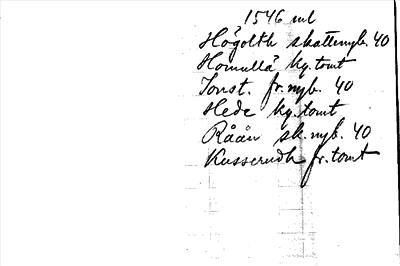 1546 ml
Högolth skattenyb. 40
Homullå kg. tomt
Tonst. fr. nyb. 40
Hede kg. tomt
Råån sk. nyb. 40
Kusserudh fr. tomt